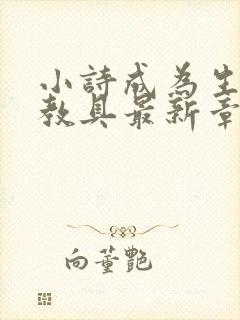 小詩成為生
教具最新章
向董艷